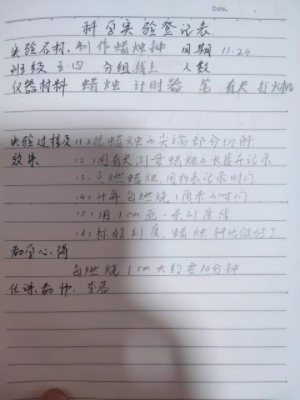 Date.
科学实验登记表
实验名称:制作蜡烛钟 日期 11.24
班级 五.四 分组 线上 人数
仪器材料 蜡烛 计时器 笔 直尺 打火机
实验过程及(1)把蜡烛的尖端部分切除
效果 (2)用直尺测量蜡烛的长度并记录
(3)点燃蜡烛,用秒表记录时间
(4)计算每燃烧1厘米的时间
(5)用1cm画一条刻度线
(6)标好刻度,蜡烛钟就做好了
教学心得
每燃烧1cm大约要10分钟
任课教师,李蓉